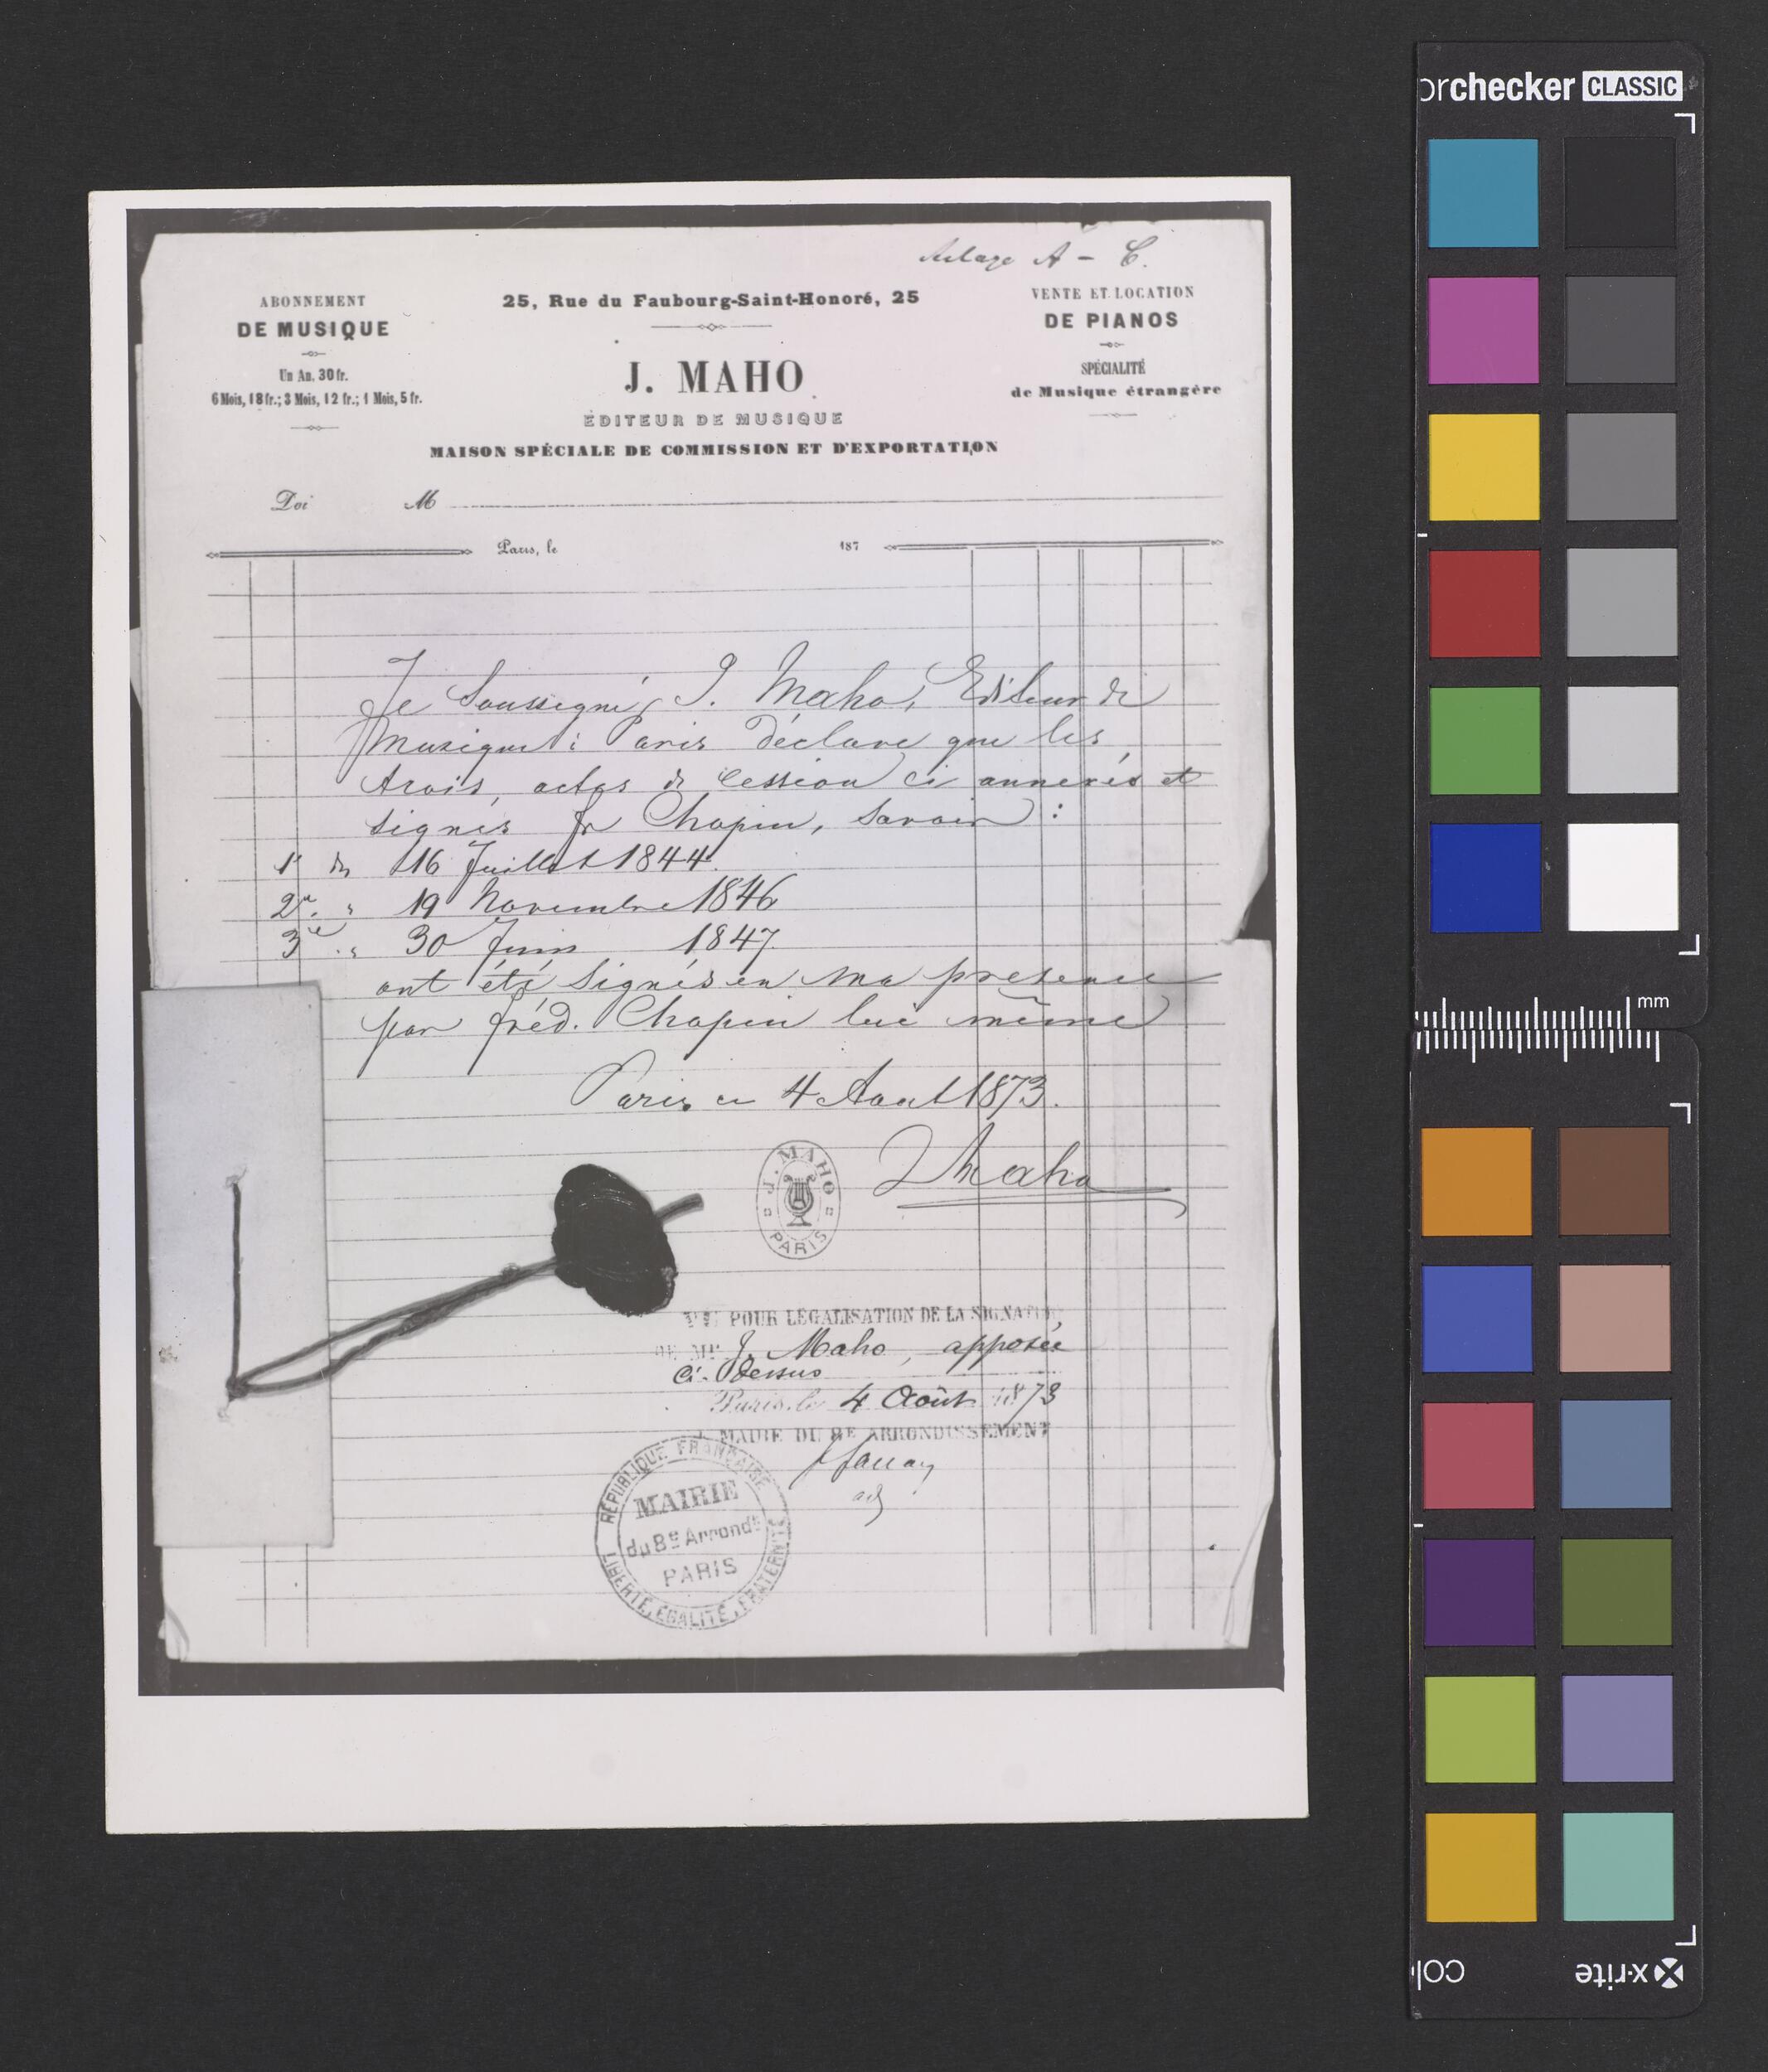 A - C.
ABONNEMENT
DE MUSIQUE
Un An, 30 fr.
6 Mois, 18 fr.; 3 Mois, 12 fr.; 1 Mois, 5 fr.
25, Rue du Faubourg-Saint-Honoré, 25
J. MAHO
ÉDITEUR DE MUSIQUE
MAISON SPÉCIALE DE COMMISSION ET D'EXPORTATION
VENTE ET LOCATION
DE PIANOS
SPÉCIALITÉ
de Musique étrangère
Doi M
Paris, le 187
Je Soussigné, J. Maho, Editeur de
Musique à Paris déclare que les
trois, actes de Cession ci annexés et
signés fr Chopin, Savoir :
1° du 16 Juillet 1844.
2e. " 19 Novembre 1846
3e " 30 Juin 1847.
ont été Signés en ma presence
par fréd. Chopin lui même
Paris ce 4 Aout 1873.
J Maho
J. MAHO
PARIS
VU POUR LÉGALISATION DE LA SIGNATURE
DE Mr J. Maho, apposée
Ci-Dessus
Paris, le 4 Août 1873
MAIRIE DU 8E ARRONDISSEMENT
adj
RÉPUBLIQUE FRANÇAISE
MAIRIE
du 8e Arrondt
PARIS
LIBERTÉ, ÉGALITÉ, FRATERNITÉ
orchecker CLASSIC
mm
col
x-rite